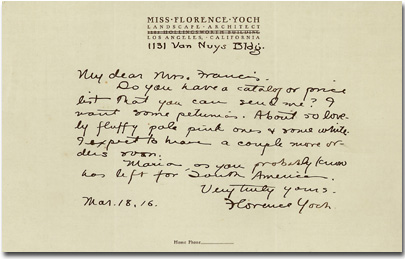 MISS·FLORENCE·YOCH
LANDSCAPE·ARCHITECT
HOLLINGSWORTH BUILDING
LOS ANGELES, CALIFORNIA
1131 Van Nuys Bldg.
My dear Mrs. Francis.
Do you have a catalog or price
list that you can send me? I
want some petunias. About 50 love-
ly fluffy pale pink ones & some white.
I expect to have a couple more or-
ders soon.
Maria as you probably know
has left for South America.
Very truly yours.
Mar. 18, 16. Florence Yoch
HOME PHONE